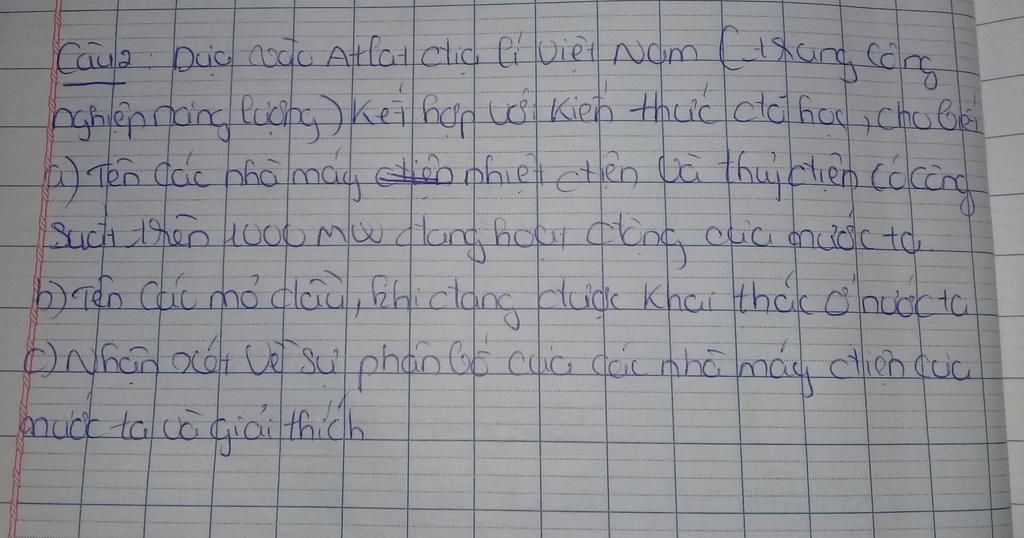 Câu 2: Dựa vào Atlat địa lí Việt Nam (trang công
nghiệp năng lượng) kết hợp với kiến thức đã học, cho biết
a) Tên các nhà máy điện nhiệt điện và thuỷ điện có công
suất trên 1000 MW đang hoạt động của nước ta
b) Tên các mỏ dầu, khí đang được khai thác ở nước ta
c) Nhận xét về sự phân bố của các nhà máy điện của
nước ta và giải thích